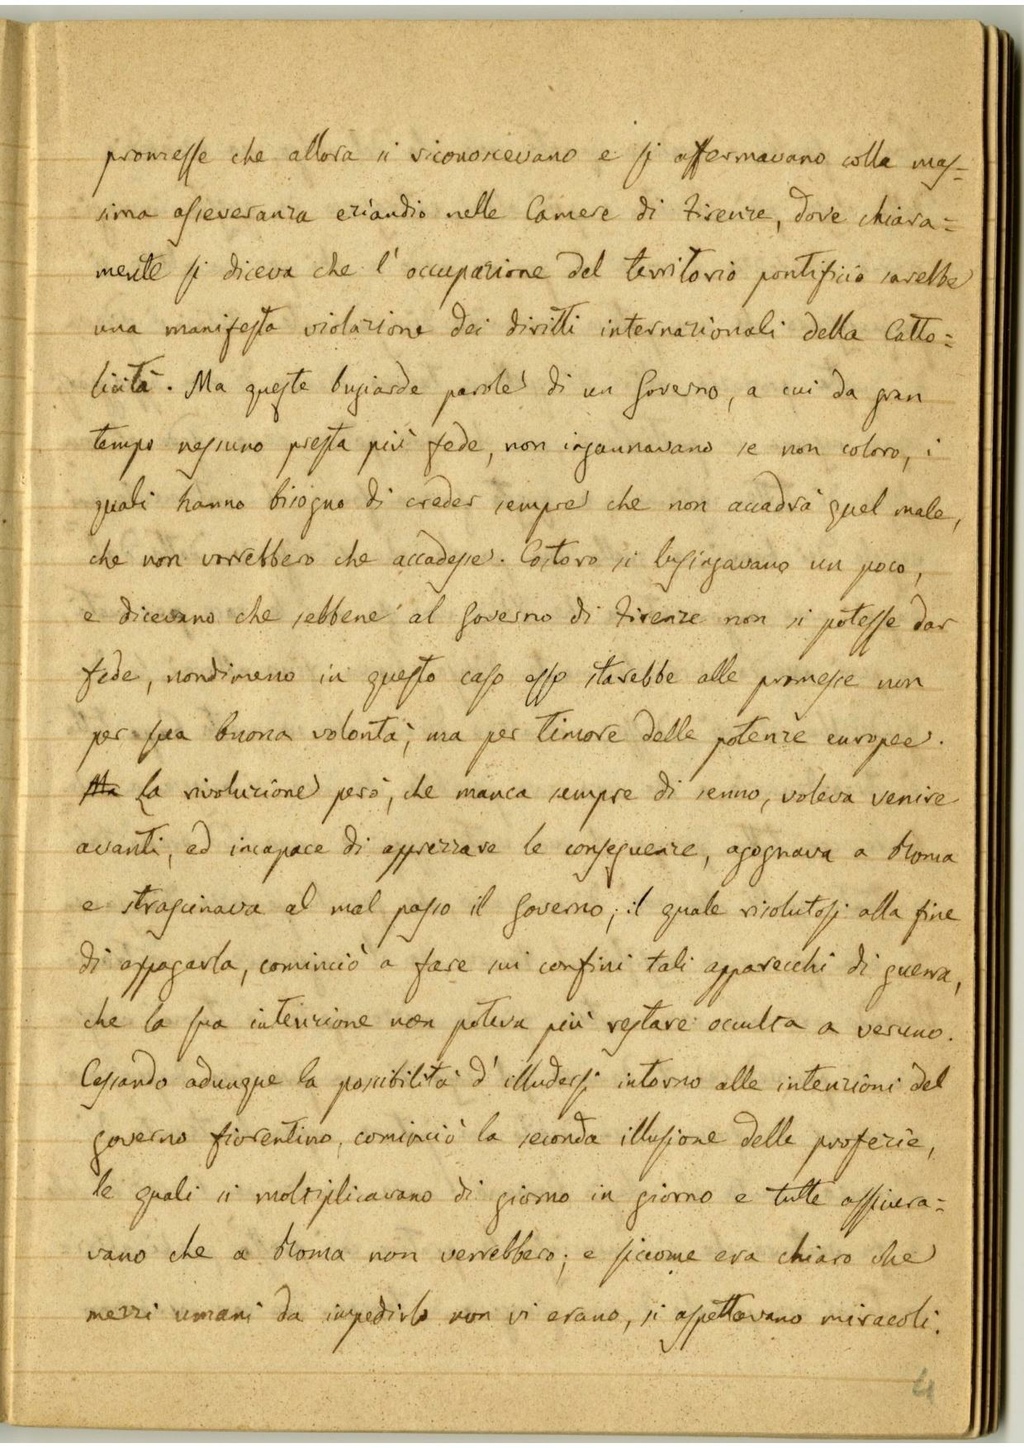 promesse che allora si riconoscevano e si affermavano colla mas=
sima asseveranza eziandio nelle Camere di Firenze, dove chiara=
mente si diceva che l'occupazione del territorio pontificio sarebbe
una manifesta violazione dei diritti internazionali della Catto=
licità. Ma queste bugiarde parole di un Governo, a cui da gran
tempo nessuno presta più fede, non ingannavano se non coloro, i
quali hanno bisogno di creder sempre che non accadrà quel male,
che non vorrebbero che accadesse. Costoro si lusingavano un poco,
e dicevano che sebbene al Governo di Firenze non si potesse dar
fede, nondimeno in questo caso esso starebbe alle promesse non
per sua buona volontà, ma per timore delle potenze europee.
Ma La rivoluzione però, che manca sempre di senno, voleva venire
avanti, ed incapace di apprezzare le conseguenze, agognava a Roma
e strascinava al mal passo il Governo; il quale risolutosi alla fine
di appagarla, cominciò a fare sui confini tali apparecchi di guerra,
che la sua intenzione non poteva più restare occulta a veruno.
Cessando adunque la possibilità d'illudersi intorno alle intenzioni del
governo fiorentino, cominciò la seconda illusione delle profezie,
le quali si moltiplicavano di giorno in giorno e tutte assicura=
vano che a Roma non verrebbero; e siccome era chiaro che
mezzi umani da impedirlo non vi erano, si aspettavano miracoli.
4